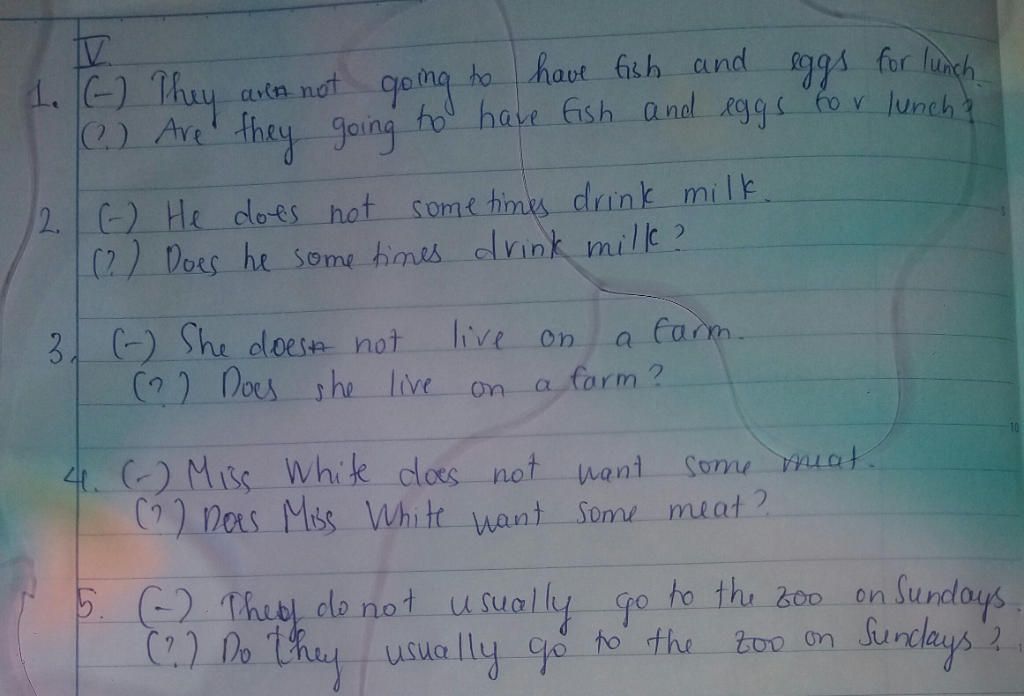 V.
1. (-) They are not going to have fish and eggs for lunch.
(?) Are they going to have fish and eggs for lunch?
2. (-) He does not sometimes drink milk.
(?) Does he some times drink milk?
3. (-) She does not live on a farm.
(?) Does she live on a farm?
4. (-) Miss White does not want some meat.
(?) Does Miss White want some meat?
5. (-) They do not usually go to the zoo on Sundays.
(?) Do they usually go to the zoo on Sundays?
5
10